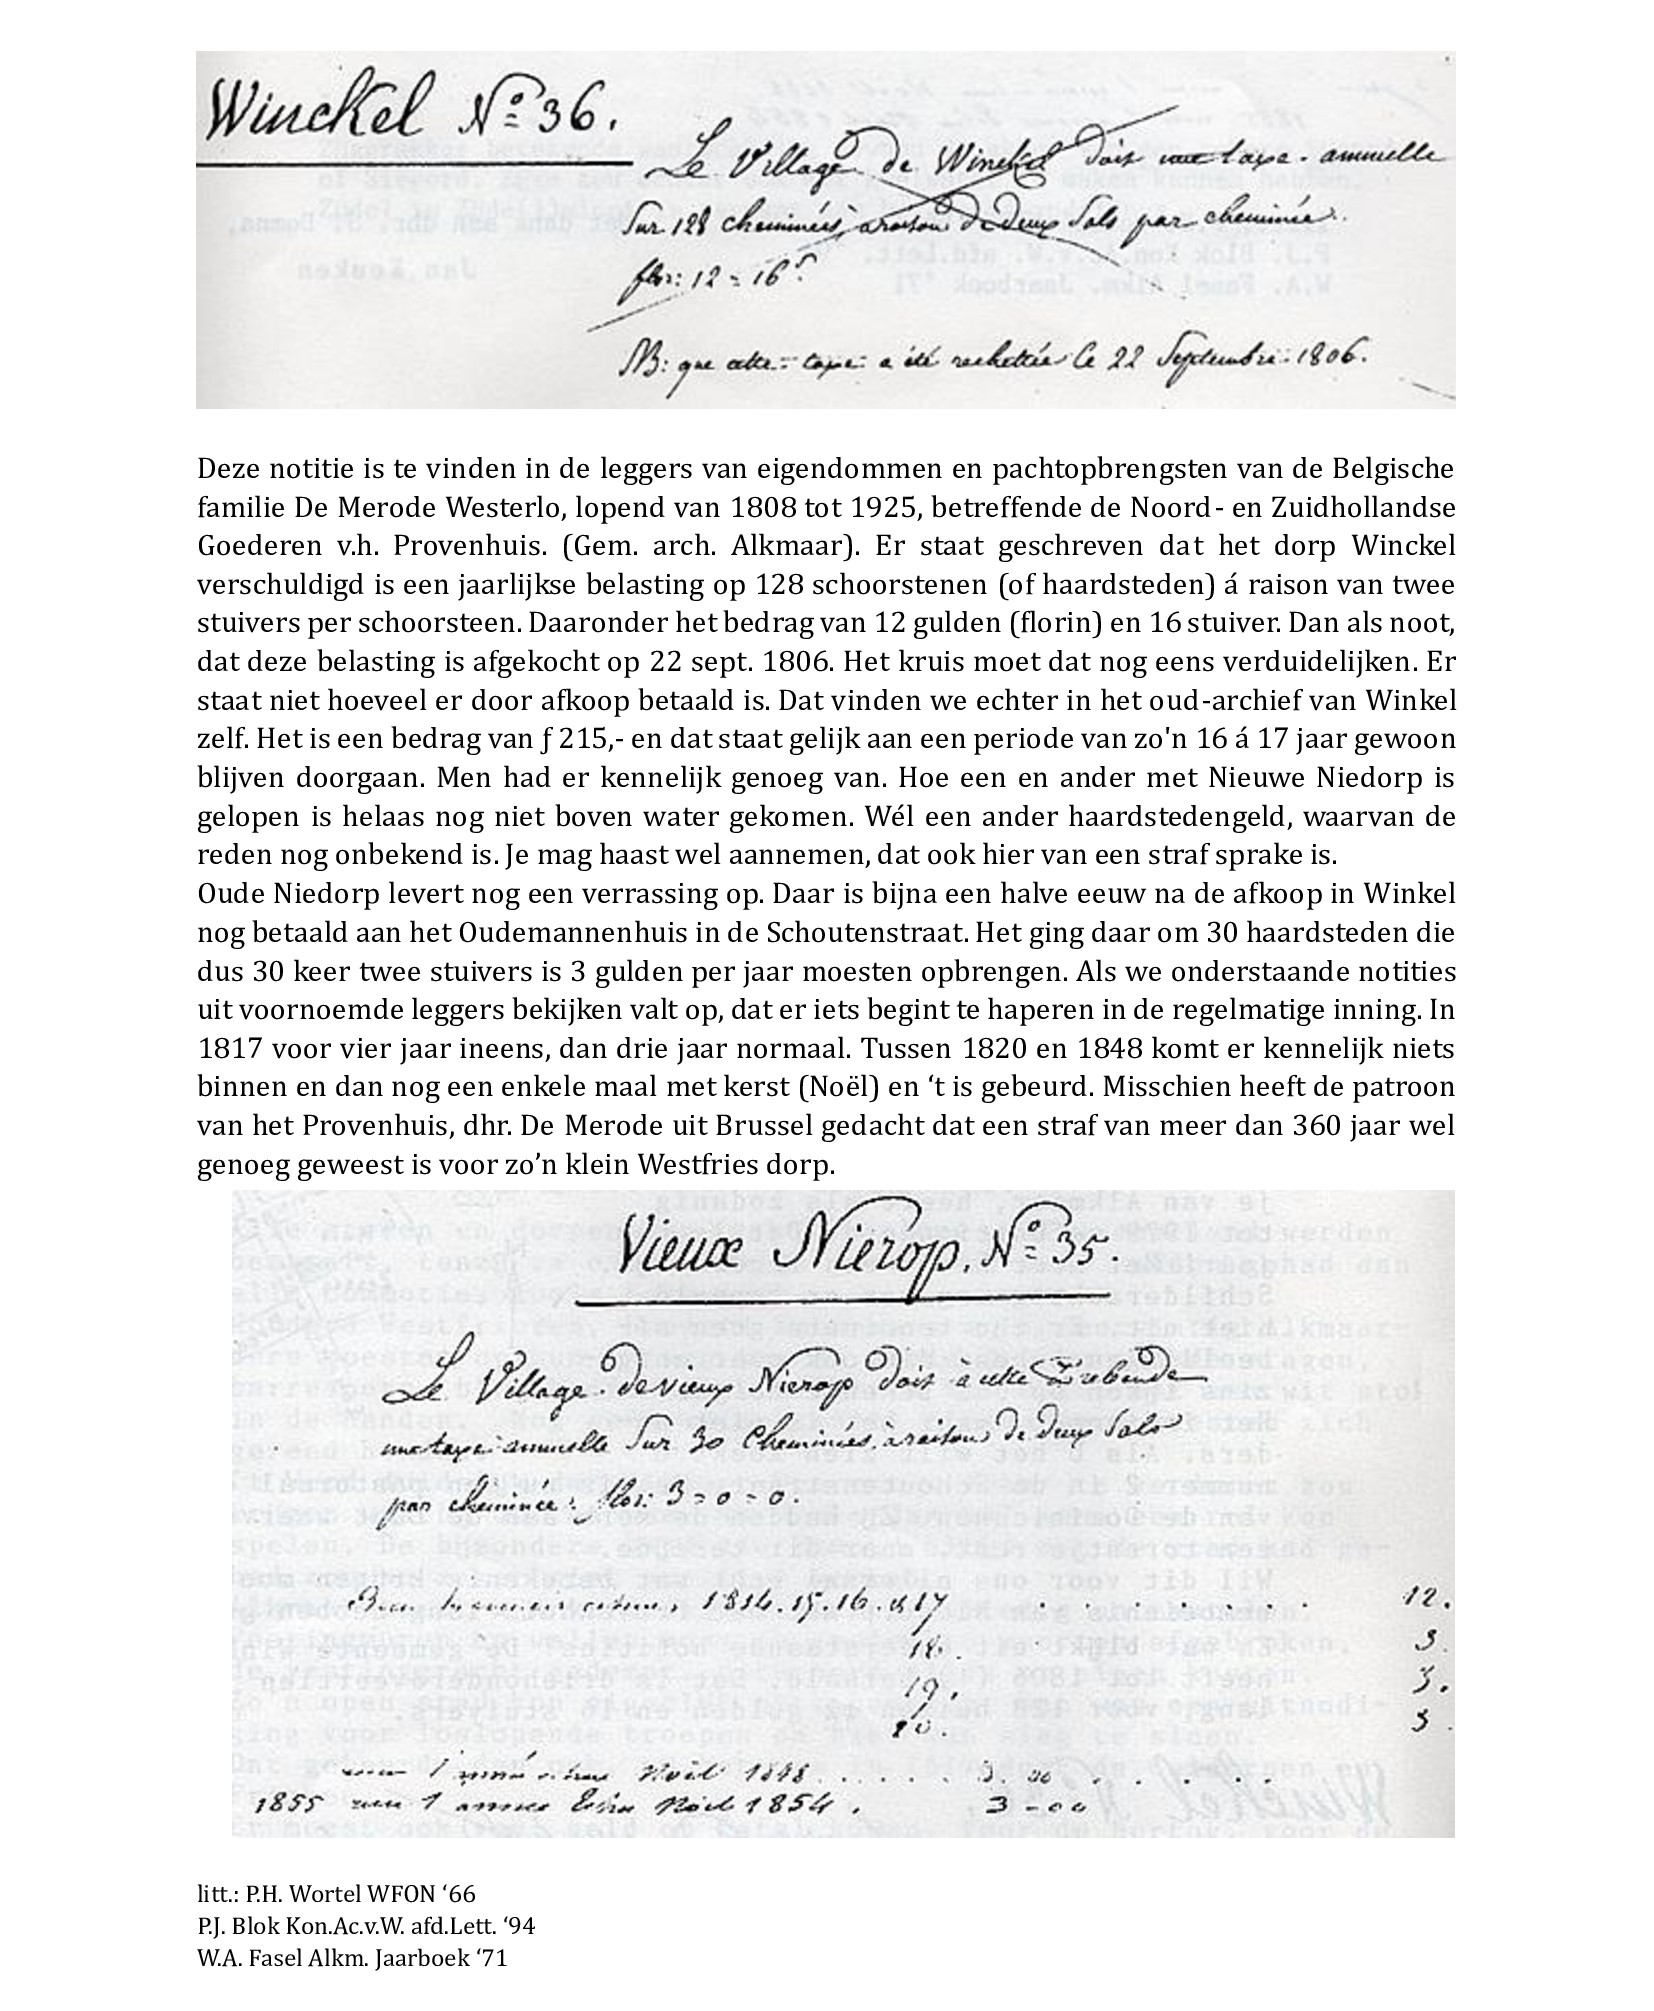 Winckel N.º 36.
Le Village de Winckel doit une taxe annuelle
Sur 128 cheminées, a raison de deux Sols par cheminée.
flor: 12 = 16 s
NB: que cette taxe a été rachettée le 22 Septembre 1806.
Deze notitie is te vinden in de leggers van eigendommen en pachtopbrengsten van de Belgische
familie De Merode Westerlo, lopend van 1808 tot 1925, betreffende de Noord- en Zuidhollandse
Goederen v.h. Provenhuis. (Gem. arch. Alkmaar). Er staat geschreven dat het dorp Winckel
verschuldigd is een jaarlijkse belasting op 128 schoorstenen (of haardsteden) á raison van twee
stuivers per schoorsteen. Daaronder het bedrag van 12 gulden (florin) en 16 stuiver. Dan als noot,
dat deze belasting is afgekocht op 22 sept. 1806. Het kruis moet dat nog eens verduidelijken. Er
staat niet hoeveel er door afkoop betaald is. Dat vinden we echter in het oud-archief van Winkel
zelf. Het is een bedrag van ƒ 215,- en dat staat gelijk aan een periode van zo'n 16 á 17 jaar gewoon
blijven doorgaan. Men had er kennelijk genoeg van. Hoe een en ander met Nieuwe Niedorp is
gelopen is helaas nog niet boven water gekomen. Wél een ander haardstedengeld, waarvan de
reden nog onbekend is. Je mag haast wel aannemen, dat ook hier van een straf sprake is.
Oude Niedorp levert nog een verrassing op. Daar is bijna een halve eeuw na de afkoop in Winkel
nog betaald aan het Oudemannenhuis in de Schoutenstraat. Het ging daar om 30 haardsteden die
dus 30 keer twee stuivers is 3 gulden per jaar moesten opbrengen. Als we onderstaande notities
uit voornoemde leggers bekijken valt op, dat er iets begint te haperen in de regelmatige inning. In
1817 voor vier jaar ineens, dan drie jaar normaal. Tussen 1820 en 1848 komt er kennelijk niets
binnen en dan nog een enkele maal met kerst (Noël) en ‘t is gebeurd. Misschien heeft de patroon
van het Provenhuis, dhr. De Merode uit Brussel gedacht dat een straf van meer dan 360 jaar wel
genoeg geweest is voor zo’n klein Westfries dorp.
Vieux Nierop. N.º 35.
Le Village de vieux Nierop doit à cette Prebende
une taxe annuelle Sur 30 Cheminées, à raison de deux Sols
par cheminée. flor: 3 = 0 = 0.
1814. 15. 16. & 17 . . . . . . . 12.
18. 3.
19. 3.
20. 3.
1 année Noël 1848 . . . . . 3. 00 . . . .
1855 1 année Noël 1854. 3 - 00
litt.: P.H. Wortel WFON ‘66
P.J. Blok Kon.Ac.v.W. afd.Lett. ‘94
W.A. Fasel Alkm. Jaarboek ‘71